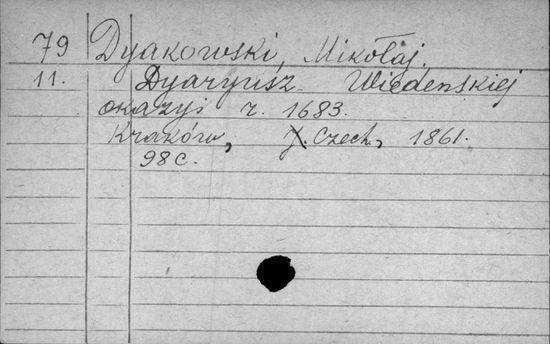 79 Dyakowski, Mikołaj.
11. Dyaryusz Wiedenskiej
okazyi r. 1683.
Kraków, J. Czech, 1861.
98 c.